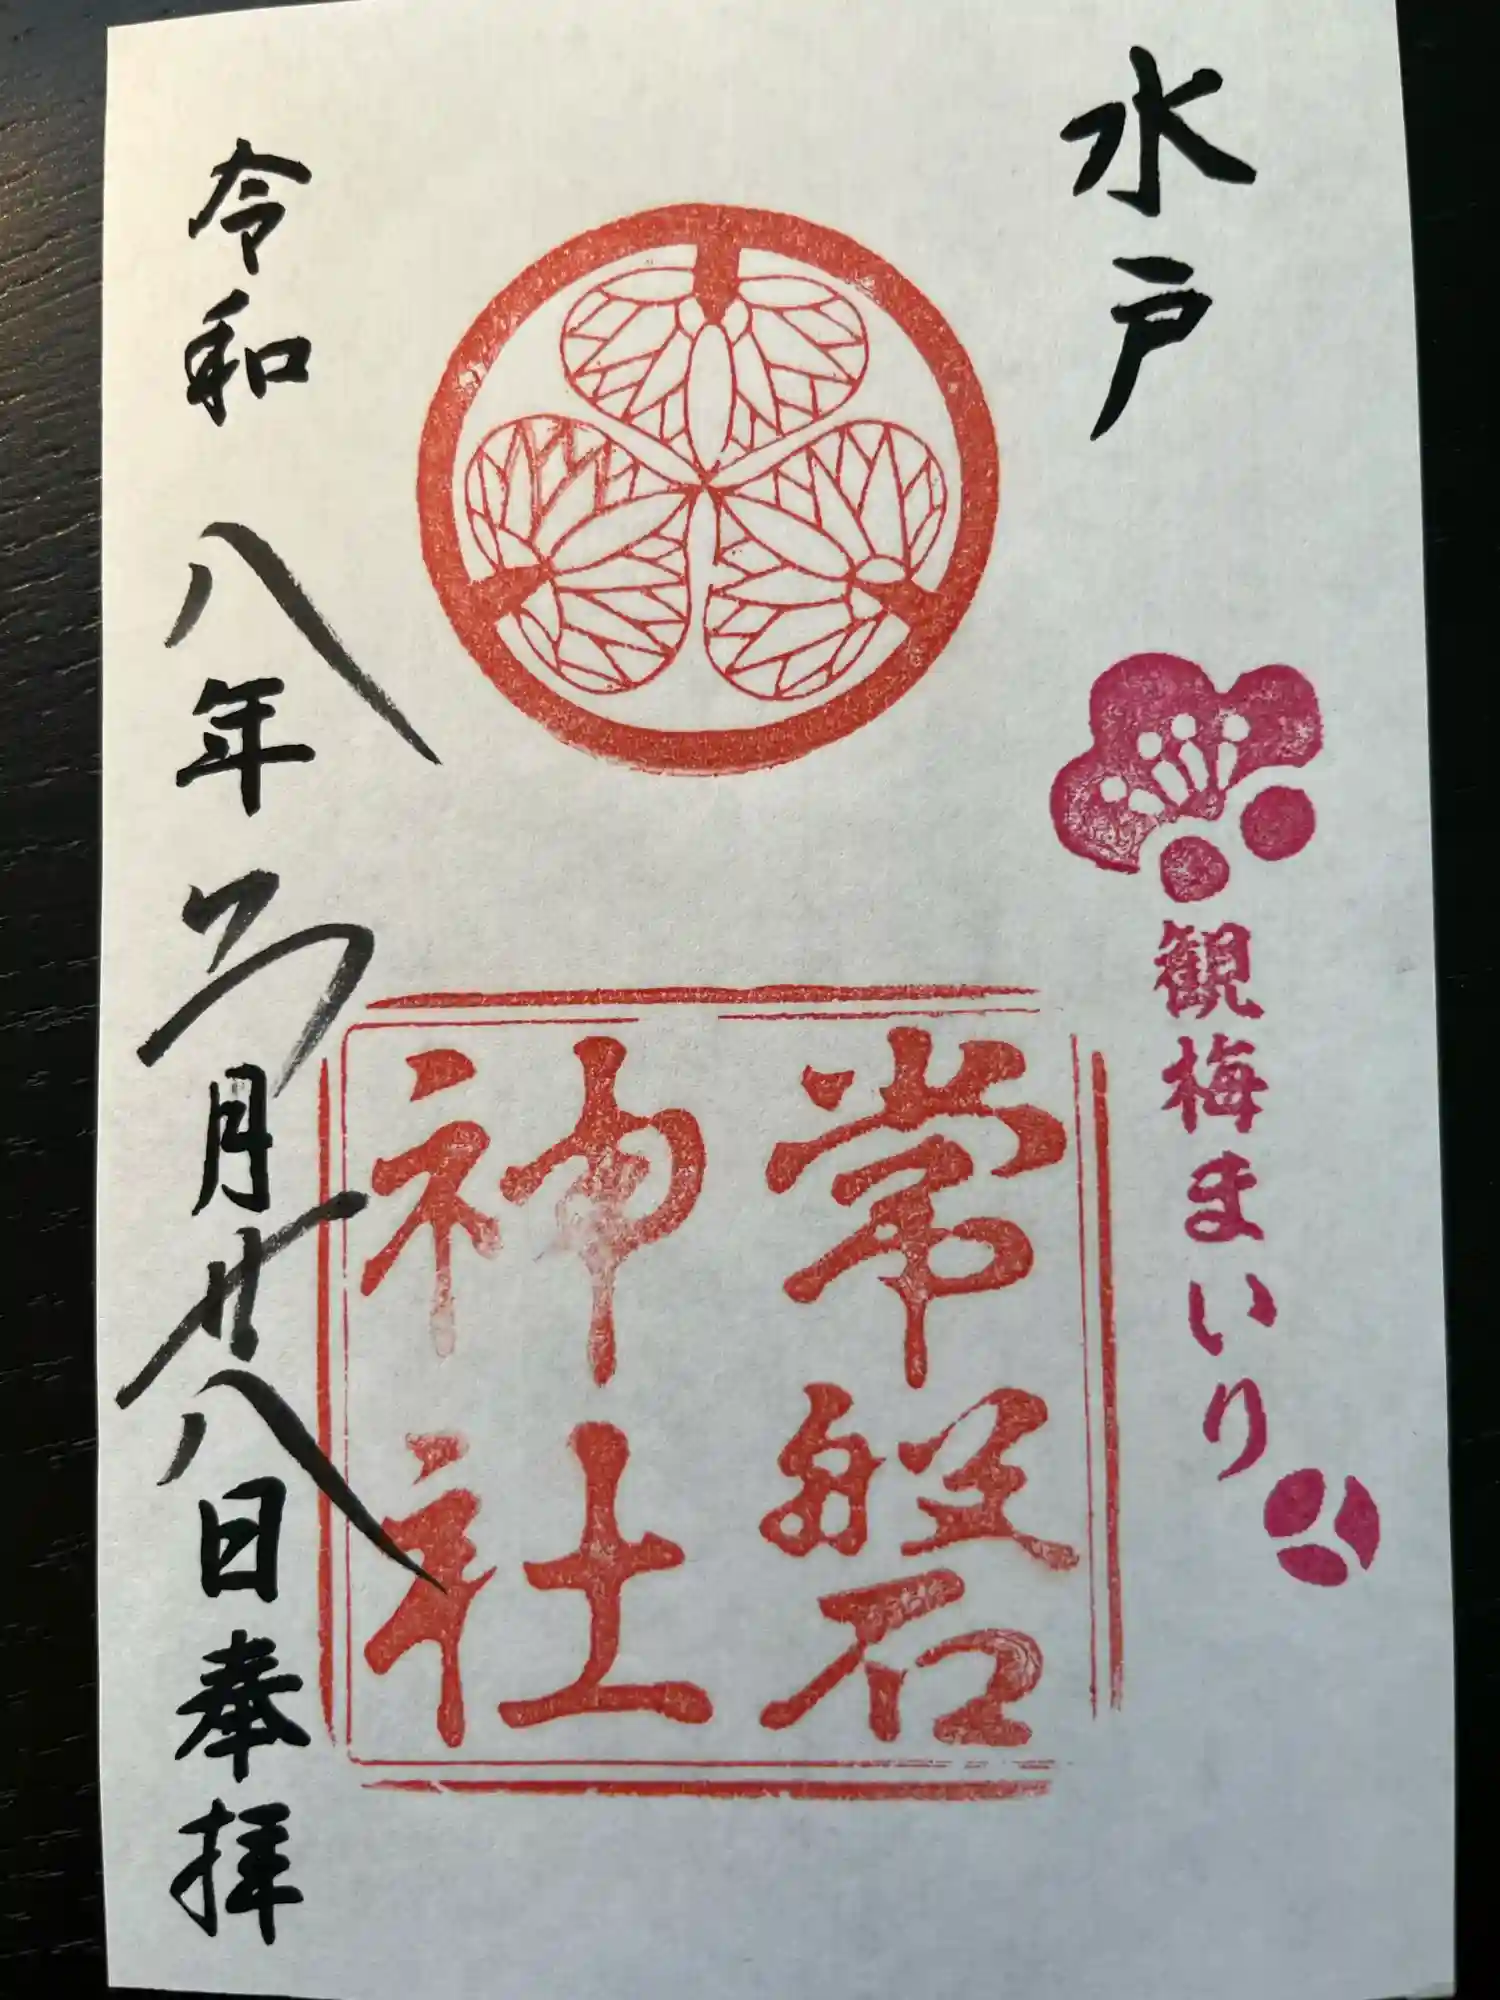 水戸
観梅まいり
常磐
神社
令和八年二月廿八日奉拝